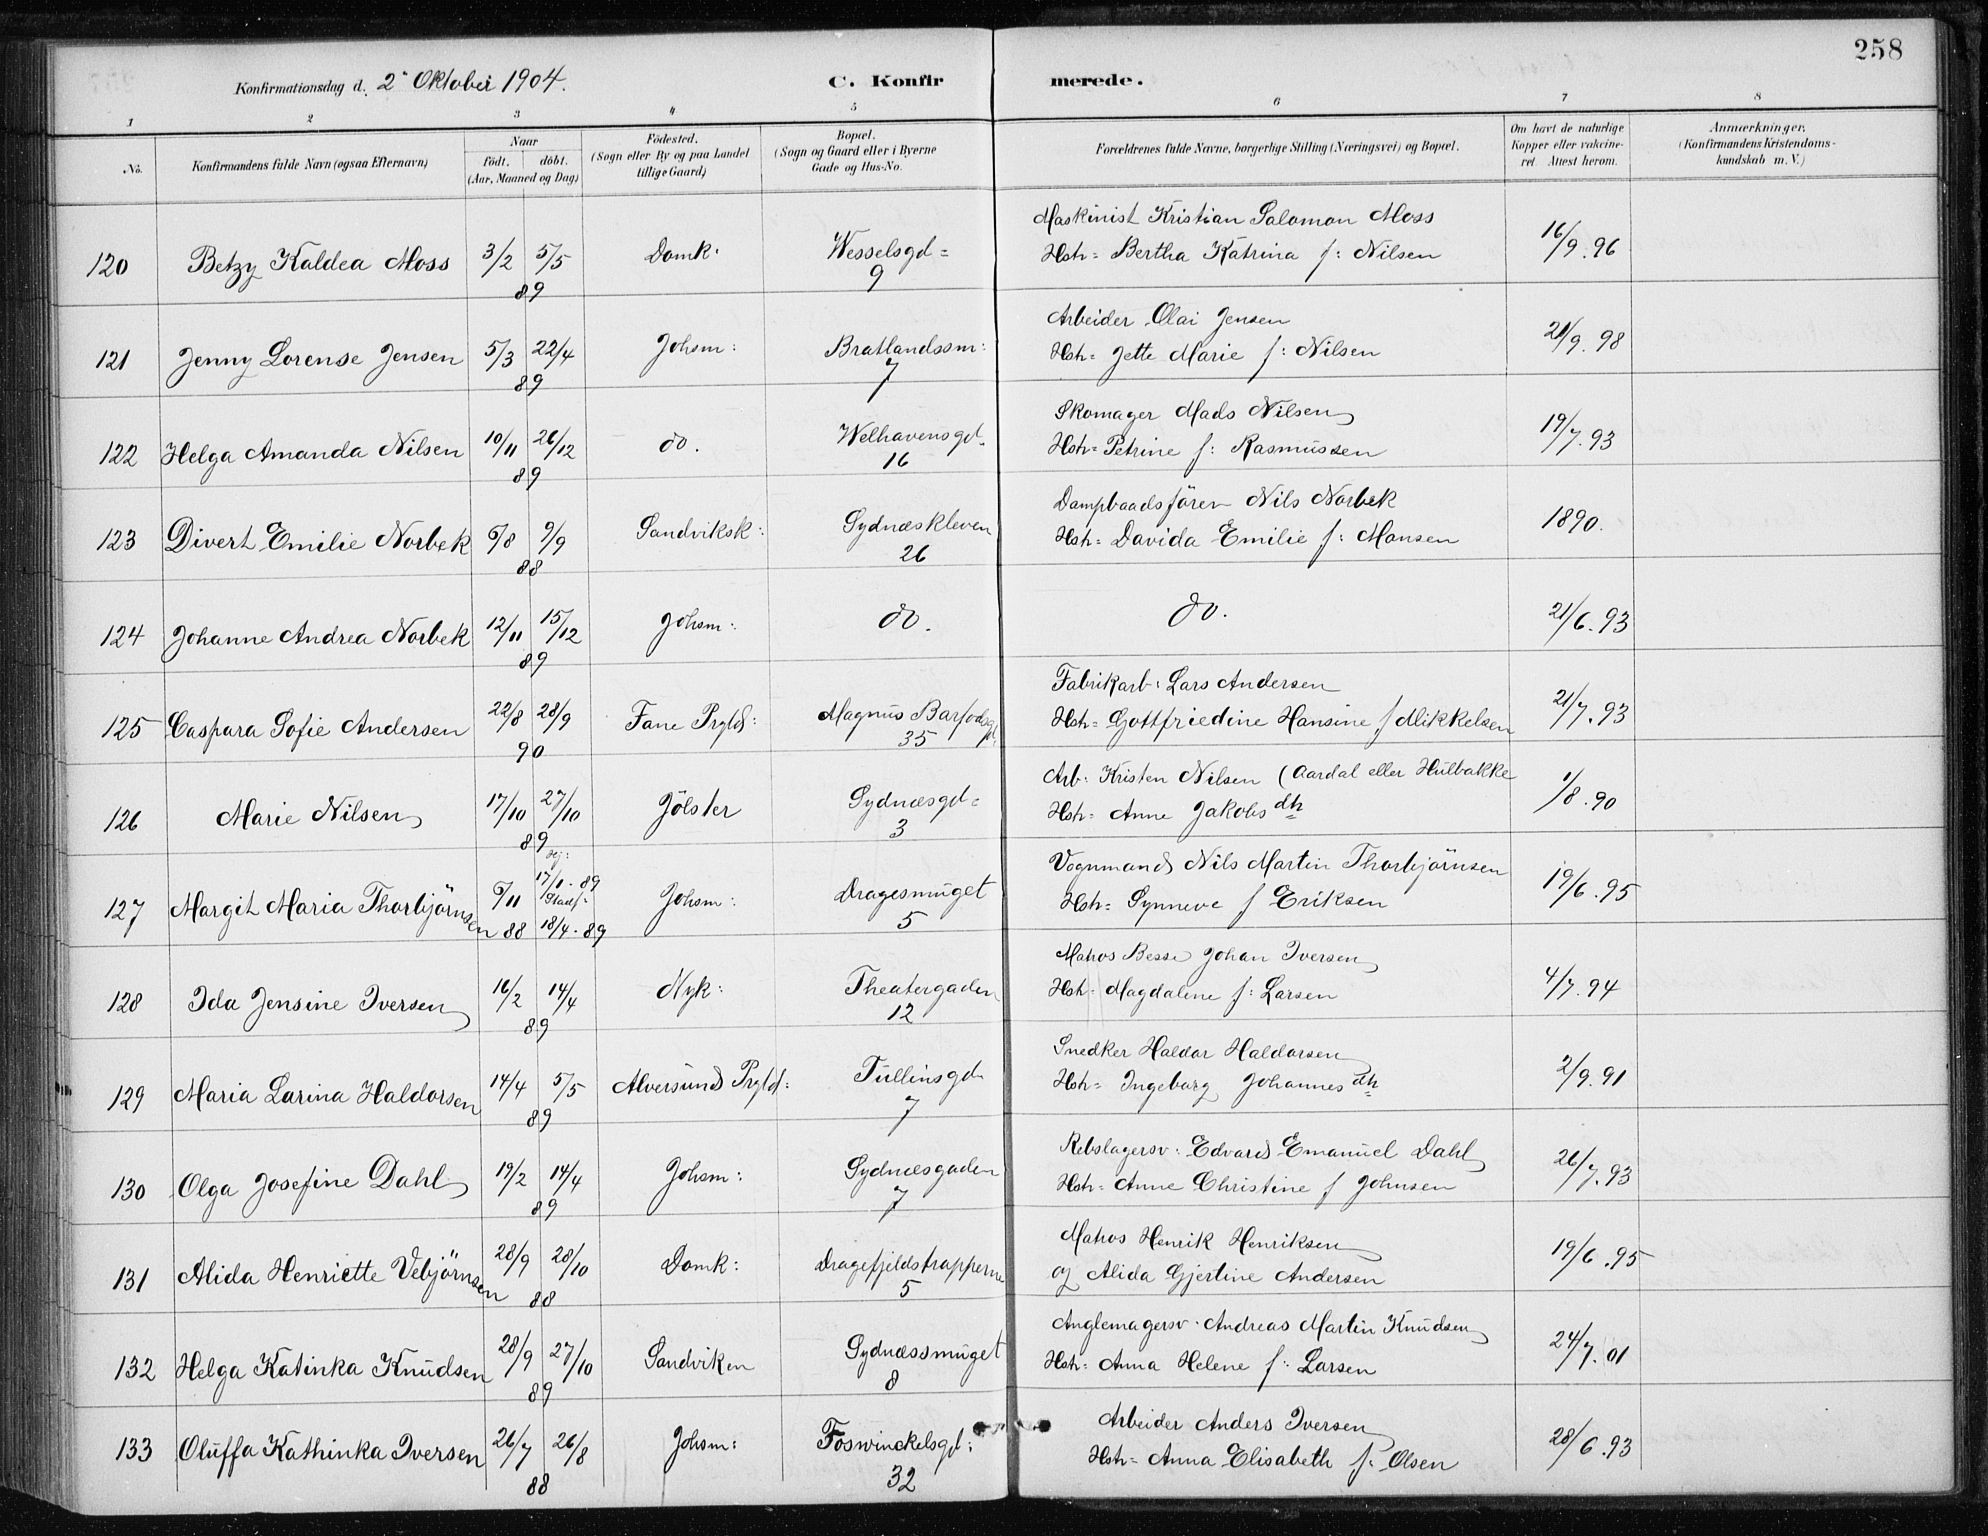 258
Konfirmationsdag d. 2 Oktober 1904.
C. Konfirmerede.
1 2 3 4 5 6 7 8
No. Konfirmandens fulde Navn (ogsaa Efternavn) Naar födt. döbt. (Aar, Maaned og Dag) Födested. (Sogn eller By og paa Landet tillige Gaard) Bopæl. (Sogn og Gaard eller i Byerne Gade og Hus-No. Forældrenes fulde Navne, borgerlige Stilling (Næringsvei) og Bopæl. Om havt de naturlige Kopper eller vakcineret. Attest herom. Anmærkninger. (Konfirmandens Kristendomskundskab m. V.)
Maskinist Kristian Salomon Moss
120 Betzy Kaldea Moss 3/2 5/5 Domk: Wesselsgd= Hst= Bertha Katrina f: Nilsen 16/9.96
89 9
Arbeider Olai Jensen
121 Jenny Lorense Jensen 5/3 22/4 Johsm: Bratlandssm: Hst= Jette Marie f: Nilsen 21/9.98
89 7
Skomager Mads Nilsen
122 Helga Amanda Nilsen 10/11 26/12 do. Welhavensgd= Hst= Petrine f: Rasmussen 19/7.93
89 16
Dampbaadsfören Nils Norbek
123 Divert Emilie Norbek 6/8 9/9 Sandviksk: Sydnæskleven Hst= Davida Emilie f: Monsen 1890.
88 26
124 Johanne Andrea Norbek 12/11 15/12 Johsm: do. do. 21/6.93
89
Fabrikarb: Lars Andersen
125 Caspara Sofie Andersen 22/8 28/9 Fane Prgld: Magnus Barfodsgd: Hst= Gottfriedine Hansine f Mikkelsen 21/7.93
90 35
Arb: Kristen Nilsen (Aardal eller Hulbakke
126 Marie Nilsen 17/10 27/10 Jölster Sydnæsgd= Hst= Anne Jakobsdh 1/8.90
89 3
Vognmand Nils Martin Thorbjörnsen
127 Margit Maria Thorbjörnsen 6/11 88 hj: 17/1-89 Stadf- 18/4-89 Johsm: Dragesmuget Hst= Synneve f Eriksen 19/6.95
5
Matros Besse Johan Iversen
128 Ida Jensine Iversen 16/2 14/4 Nyk: Theatergaden Hst= Magdalene f: Larsen 4/7.94
89 12
Snedker Haldor Haldorsen
129 Maria Larina Haldorsen 14/4 5/5 Alversund Prgld: Tullinsgd Hst= Ingeborg Johannesdh 2/9.91
89 7
Rebslagersv: Edvard Emanuel Dahl
130 Olga Josefine Dahl 19/2 14/4 Johsm: Sydnæsgaden Hst= Anne Christine f Johnsen 26/7.93
89 7
Matros Henrik Henriksen
131 Alida Henriette Vebjörnsen 28/9 28/10 Domk: Dragefjeldstrapperne og Alida Gjertine Andersen 19/6.95
88 5
Anglemagersv. Andreas Martin Knudsen
132 Helga Katinka Knudsen 28/9 27/10 Sandviken Sydnæssmuget Hst: Anna Helene f: Larsen 24/7.01
89 8
Arbeider Anders Iversen
133 Oluffa Kathinka Iversen 26/7 26/8 Johsm: Foswinckelsgd: Hst= Anna Elisabeth f: Olsen 28/6.93
88 32